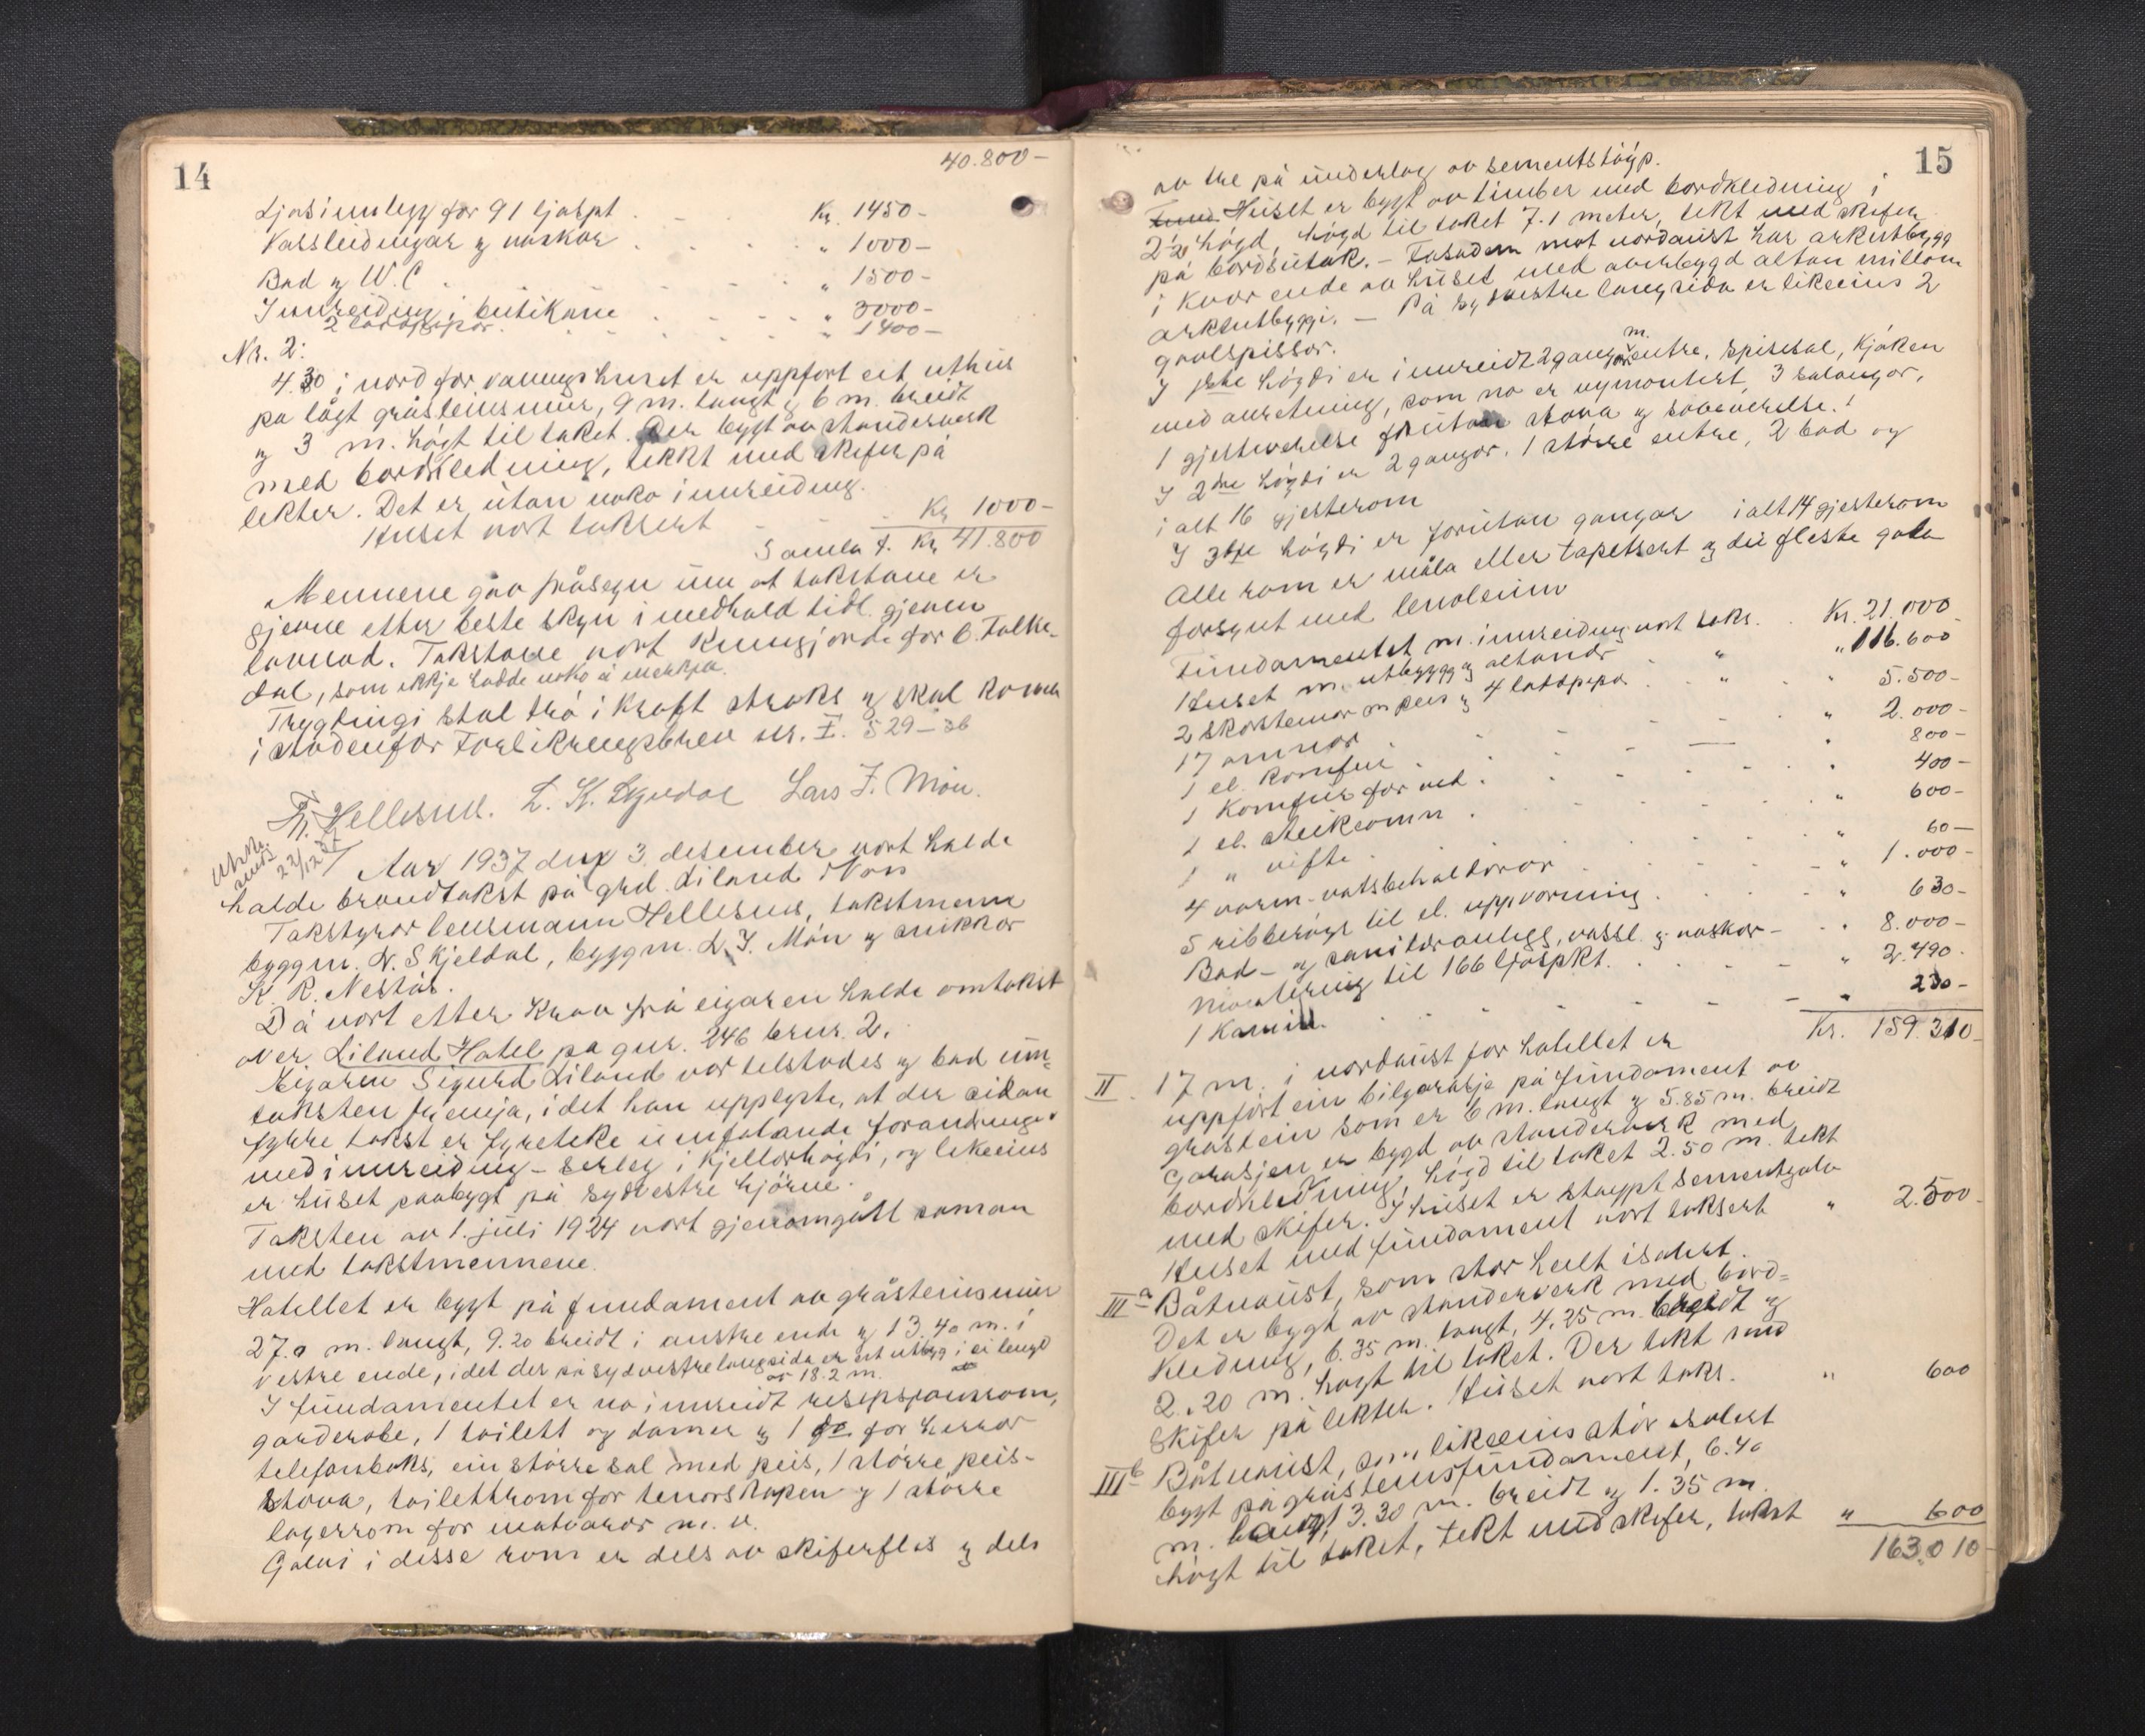 14
40.800 –
Ljosinnlegg for 91 ljospt . - . Kr. 1450 –
Vassleidningar og vaskar . . . . " 1000 –
Bad og W.C . . . . " 1500 –
Innreidning i butikane . - - - " 3000 –
2 luftpipor . . . . " 1400 –
Nr. 2:
4.30 i nord for vaaningshuset er uppført eit uthus
på lågt gråsteinsmur, 9 m. langt og 6 m. breidt
og 3 m. høgt til taket. Der bygt av standerverk
med bordkledning, tekkt med skifer på
lekter. Det er utan noko innreidning.
Huset vort taksert - - - Kr 1000 –
Samla t. Kr 41.800
Mennene gav fråsegn um at takstane er
gjevne etter beste skyn i medhald tidl. gjeven
lovnad. Takstane vort kunngjorde for O. Falke-
dal, som ikkje hadde noko å merkja.
Trygdingi skal trå i kraft straks og skal koma
i staden for Forlikringsbrev nr. I. § 29 – 36
Fr. Hellesnes. L. K. Skjeldal Lars J. Møn.
Utskr.
sendt
22/12 37
Aar 1937 den 3. desember vort halde
halde brandtakst på grd. Liland i Voss
Takstyrar lensmann Hellesnes, takstmenn
byggm. N. Skjeldal, byggm. L. J. Møn og snikkar
K. R. Nestås.
Då vort etter krav frå eigaren halde omtakst
over Liland Hotel på gnr. 246 brnr. 2.
Eigaren Sigurd Liland var tilstades og bad um
taksten fornyja, i det han upplyste, at der sidan
fyrre takst er fyreteke umfatande forandringar
med innreidning – serleg i kjellarhøgdi, og likeeins
er huset paabygt på sydvestre hjørne.
Taksten av 1. juli 1924 vort gjenomgått saman
med takstmennene.
Hotellet er bygt på fundament av gråsteinsmur
27.0 m. langt, 9.20 breidt i austre ende og 13.40 m. i
vestre ende, i det der på sydvestre langsida er eit utbyg i ei lengd
av 18.2 m.
I fundamentet er no innreidt resepsjonsrom,
garderobe, 1 toilett og damer og 1 do for herrar
telefonboks, ein større sal med peis, 1 større peis-
stova, toilettrom for tenarskapen og 1 større
lagerrom for matvaror m. v.
Golvi i disse rom er dels av skiferflis og dels
15
av tre på underlag av sementstøyp.
Huset er bygt av timber med bordkledning i
2½ høgd, høgd til taket 7.1 meter, tekt med skifer
på bordsutak. – Fasaden mot nordaust har arkutbygg
i kvar ende av huset med overbygd altan millom
arkeutbyggi. – På sydvestre langsida er likeeins 2
gavlspissar.
I 1ste høgdi er innreidt 2 gangar m. entre, spisesal, kjøken
med anretning, som no er nymontert, 3 salongar,
1 gjesteverelse forutan stova og soveverelse.
I 2dre høgdi er 2 gangar. 1 større entre, 2 bad og
i alt 16 gjesterom
I 3dje høgdi er forutan gangar ialt 14 gjesterom
Alle rom er måla eller tapetsert og dei fleste golv
forsynt med linoleum
Fundamentet m. innreidning vort taks. . Kr. 21.000
Huset m. utbygg og altanar " " 116.600
2 skorsteinar m peis og 4 luftpipor . " . " 5.500 –
17 omnar . - - - " 2.000 –
1 el. komfur . - - — " 800 –
1 komfur for ved . . . . " 400 –
1 el. steikeomn . - - - " 600 –
1 " vifte . . . . " 60 —
4 varm-vatsbehaldarar . . . " 1.000 –
5 ribberøyr til el. uppvarming . . . " 630 –
Bad- og sanitæranlegg, vassl. og vaskar – . . 8.000 –
Montering til 166 ljospkt. . . . " 2.490 .
1 Kamin . . - - - " 230 –
Kr. 159.310 –
II. 17 m. i nordaust for hotellet er
uppført ein bilgarasje på fundament av
gråstein som er 6 m. langt og 5.85 m. breidt
Garasjen er bygd av standerverk med
bordkledning, høgd til taket 2.50 m. tekt
med skifer. I huset er støypt sementgolv
Huset med fundament vort taksert " 2.500 –
IIIa Båtnaust, som står heilt isolert.
Det er bygt av standerverk med bord-
kledning, 6.35 m. langt, 4.25 m. breidt og
2.20 m. høgt til taket. Der tekt med
skifer på lekter. Huset vort taks. " 600
IIIb Båtnaust, som likeeins står isolert
bygt på gråsteinsfundament, 6.40
m. langt, 3.30 m. breidt og 1.35 m.
høgt til taket, tekt med skifer, takst " 600
163.010 –